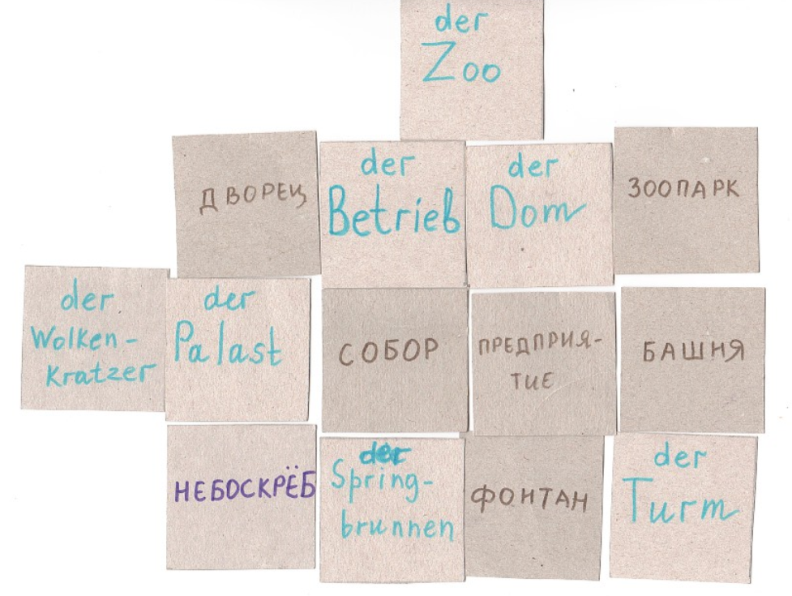 der
Zoo
ДВОРЕЦ
der
Betrieb
der
Dom
ЗООПАРК
der
Wolken-
kratzer
der
Palast
СОБОР
ПРЕДПРИЯ-
ТИЕ
БАШНЯ
НЕБОСКРЁБ
der
Spring-
brunnen
ФОНТАН
der
Turm